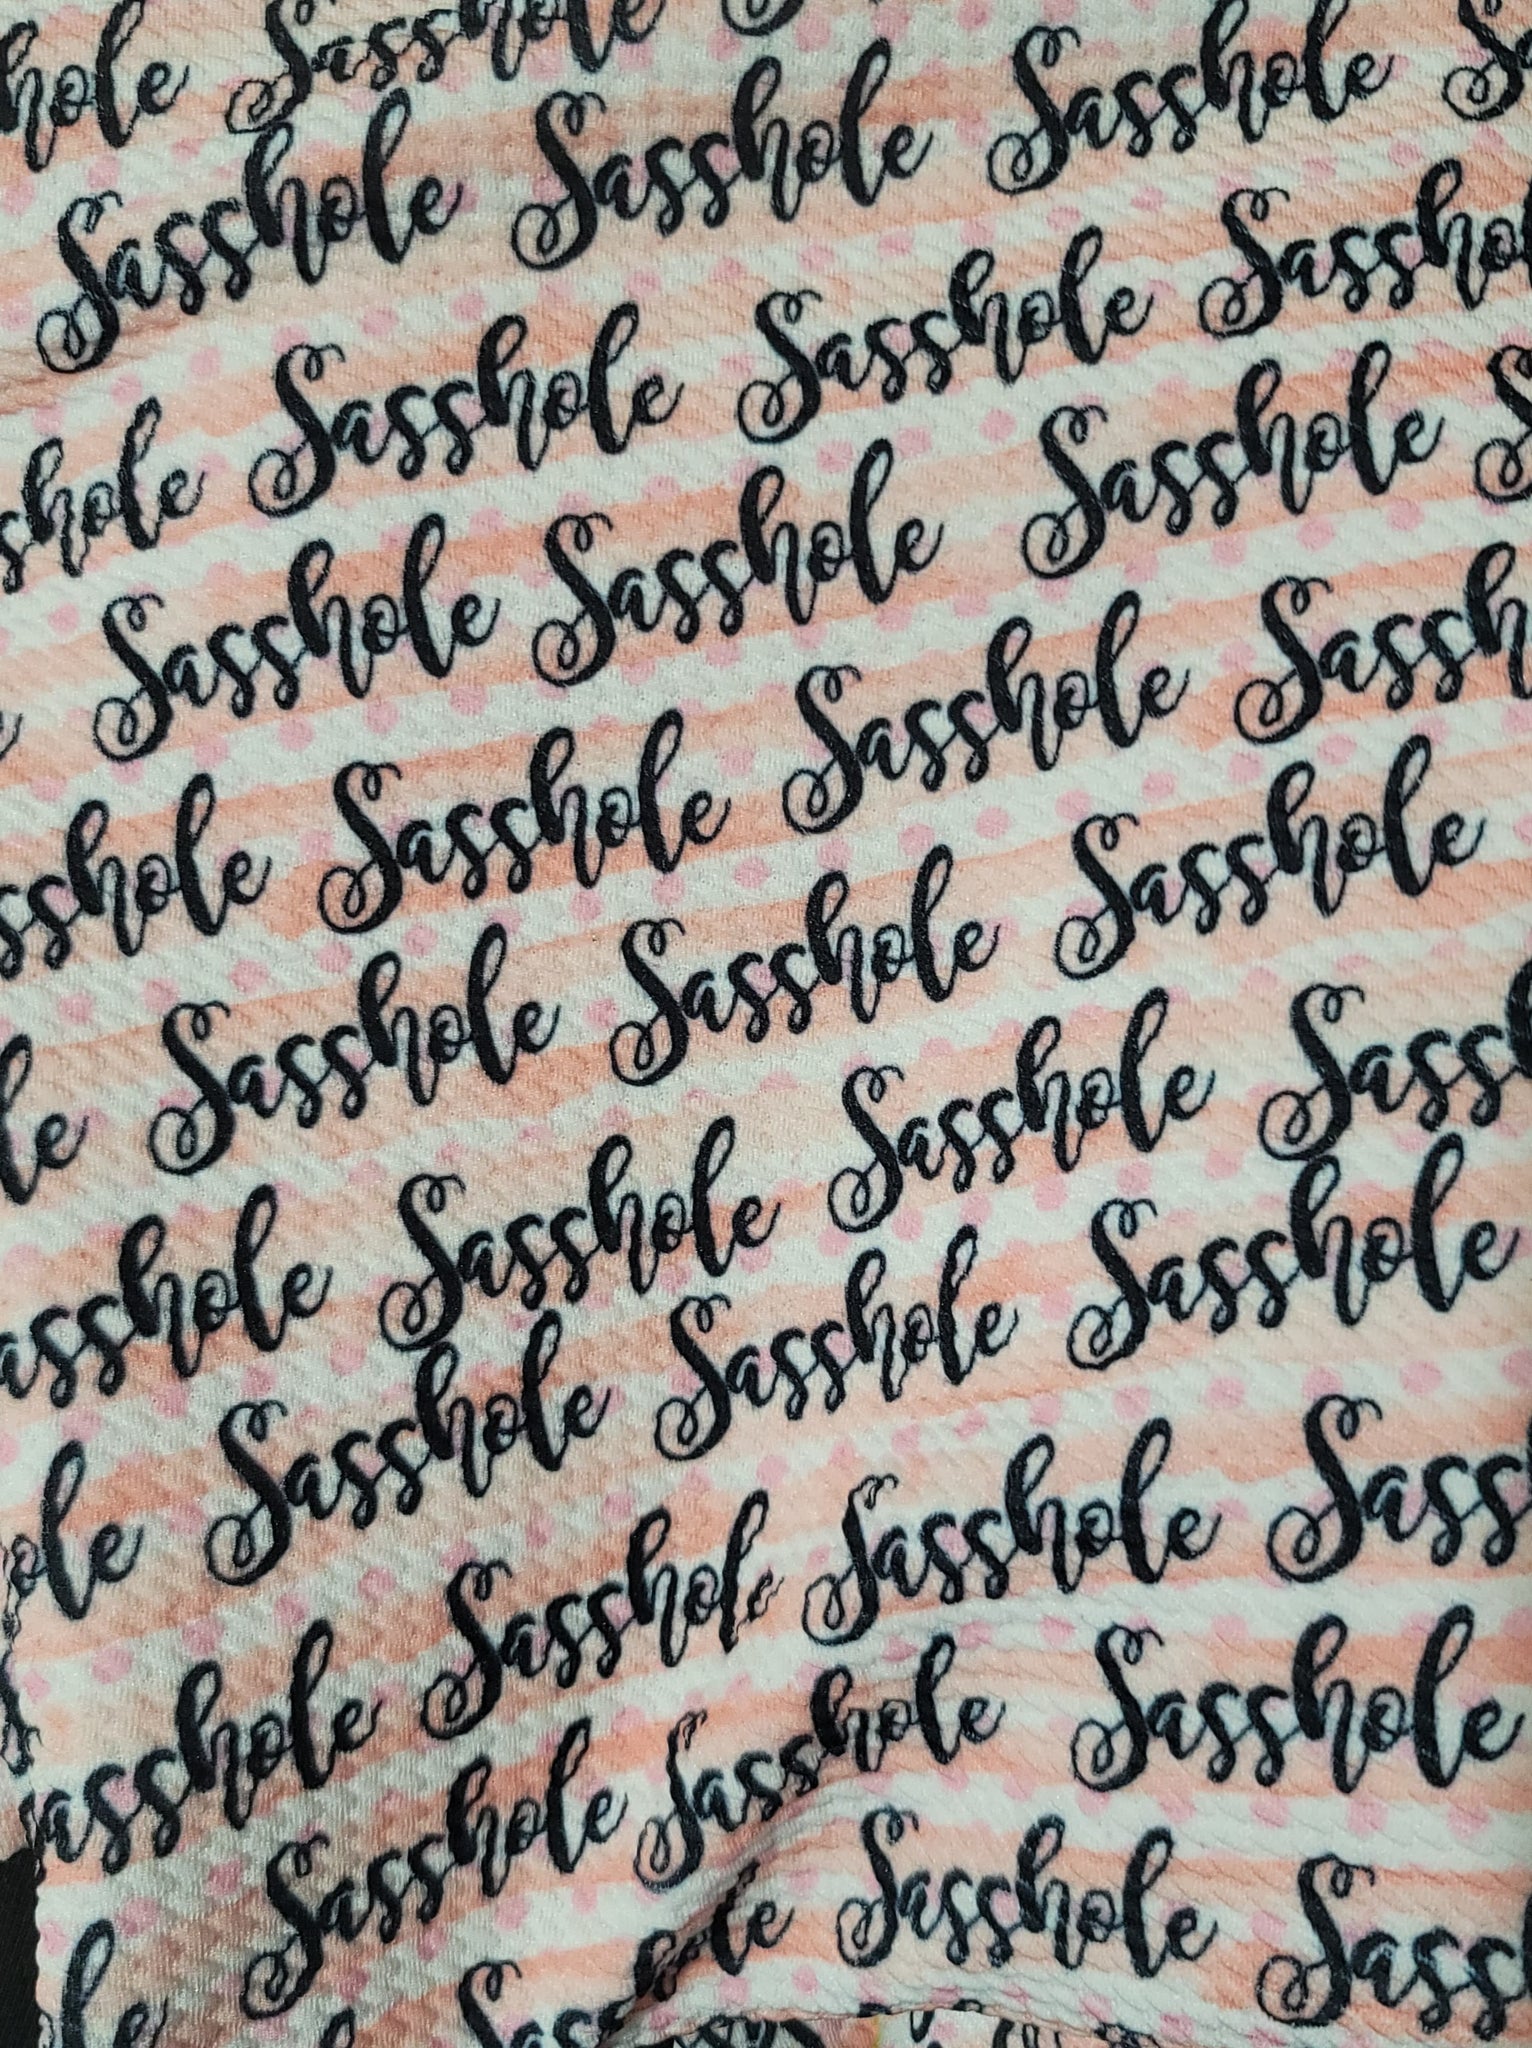 hole Sasshole
Sasshole Sasshole Sasshole
sshole Sasshole Sasshole Sassho
Sasshole Sasshole Sasshole
sshole Sasshole Sasshole Sassh
Sasshole Sasshole Sasshole
le
asshole Sasshole Sasshole Sassh
Sasshole Sasshole Sasshole
ole
asshole Sasshole Sasshole Sassh
Sasshole Sasshole Sasshole
le Sasshole Sass